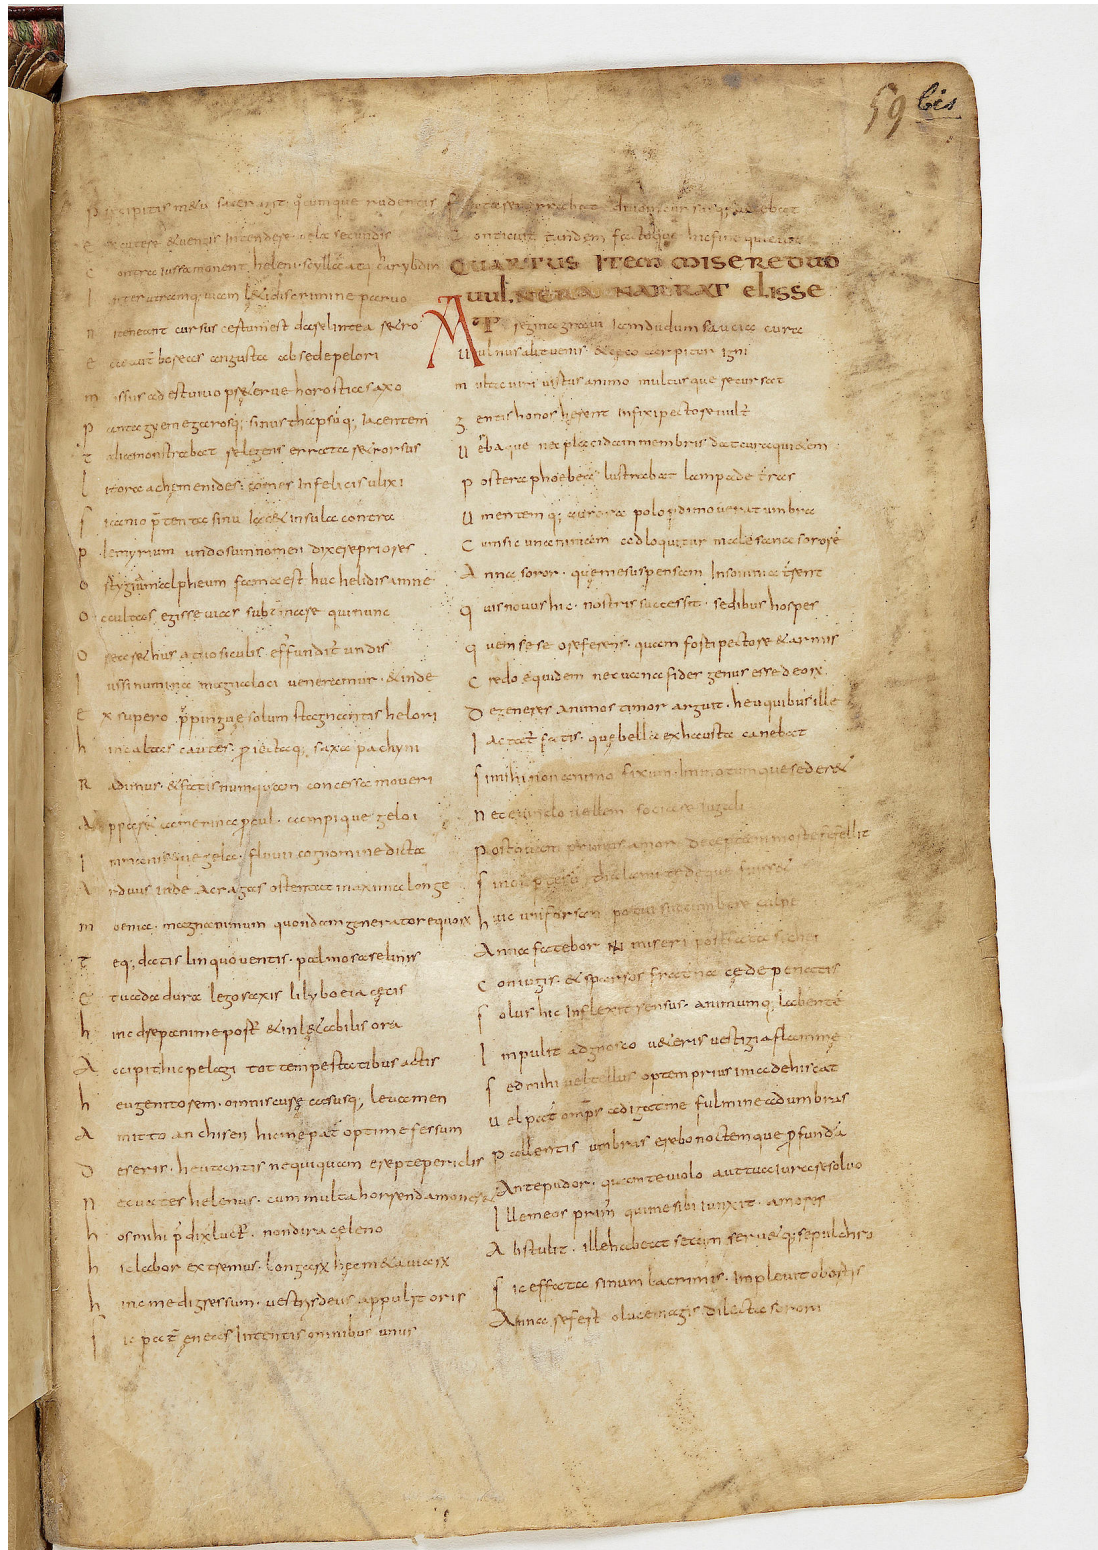 59 bis
P recipitis metus acer agit quocumque rudentis
e xcutere & uentis intendere uela secundis
C ontra iussa monent heleni scyllã atq; carybdin
I nter utramq; uiam l&i discrimine paruo
n i teneant cursus certum est dare lintea r&ro
e cce aut boreas angusta ab sede pelori
m issus adest uiuo preteruehor ostia saxo
P antagye megarosq; sinus thapsũq; iacentem
t alia monstrabat relegens errata r&rorsus
l itora achemenides comes infelicis ulixi
s icanio p̃tenta sinu iac& insula contra
P lemyrium undosum nomen dixere priores
O rtygiam alpheum fama est huc helidis amne
O ccultas egisse uias subt̃ mare qui nunc
O re ar&husa tuo siculis effundit̃ undis
I ussi numina magna loci ueneramur & inde
e xsupero p̃pingue solum stagnantis helori
h inc altas cautes proiectaq; saxa pachyni
R adimus & fatis numquam concessa moueri
A pparet camerina procul campique geloi
I mmanisque gela fluuii cognomine dicta
A rduus inde acragas ostentat maxima longe
m oenia magnanimum quondam generator equorum
T eq; datis linquo uentis palmosa selinis
E t uada dura lego saxis lilyboeia cęcis
h inc drepani me port' & inl&abilis ora
A ccipit hic pelagi tot tempestatibus actis
h eu genitorem omnis curę casusq; leuamen
A mitto anchisen hic me pat̃ optime fessum
D eseris heu tantis nequiquam erepte periclis
N ec uates helenus cum multa horrenda moneret
h os mihi p̃dixit luct' non dira cęleno
h ic labor extremus longarum hęc m&a uiarum
h inc me digressum uestris deus appulit oris
S ic pat̃ eneas intentis omnibus unus
F ata renarrabat diuom cursusq; docebat
C onticuit tandem factoque hic fine quieuit
QUARTUS ITEM MISERE DUO
VUL NERA NARRAT ELISSE
AT regina graui iamdudum saucia cura
U ulnus alit uenis & cęco carpitur igni
m ulta uiri uirtus animo multusque recursat
g entis honos hęrent infixi pectore uult'
U erbaque nec placidam membris dat cura qui&em
P ostera phoebea lustrabat lampade t̃ras
U mentemq; aurora polo dimouerat umbra
C um sic unanimam adloquitur male sana sororẽ
A nna soror que me suspensam insomnia t̃rent
q uis nouus hic nostris successit sedibus hospes
q uem sese ore ferens quam forti pectore & armis
C redo equidem nec uana fides genus esse deorum
D egeneres animos timor arguit heu quibus ille
I actat̃ fatis que bella exhausta canebat
S i mihi non animo fixum immotumque seder&
N e cui me uinclo uellem sociare iugali
P ostquam primus amor deceptam morte fefellit
S i non pertesũ thalami tedeque fuiss&
h uic uni forsan potui succumbere culpe
A nna fatebor enim miseri post fata sichei
C oniugis & sparsos fraterna cęde penatis
S olus hic inflexit sensus animumq; labentẽ
I mpulit adgnosco u&eris uestigia flammę
S ed mihi uel tellus optem prius ima dehiscat
U el pat̃ omp̃s adigat me fulmine ad umbras
P allentis umbras erebo noctemque profundã
A nte pudor quam te uiolo aut tua iura resoluo
I lle meos prim' qui me sibi iunxit amores
A bstulit ille habeat secum seru&q; sepulchro
S ic effata sinum lacrimis impleuit obortis
A nna refert o luce magis dilecta sorori